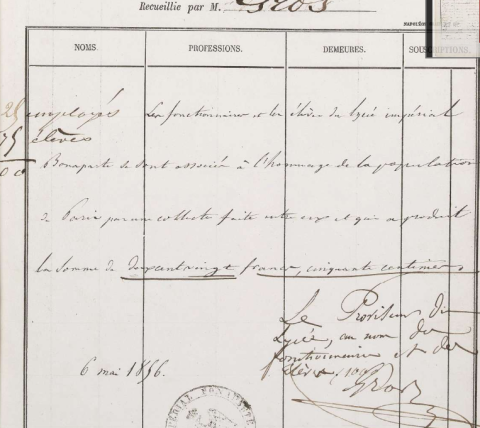 Recueillie par M. Gros
NAPOLÉON
NOMS. PROFESSIONS. DEMEURES. SOUSCRIPTIONS.
25 employés Les fonctionnaires et les élèves du lycée impérial
75 élèves
Bonaparte se sont associés à l'hommage de la population
de Paris par une collecte faite entre eux et qui a produit
la Somme de francs, cinquante centimes
Le Proviseur du
Lycée, au nom des
fonctionnaires et des
élèves
Gros
6 mai 1856.